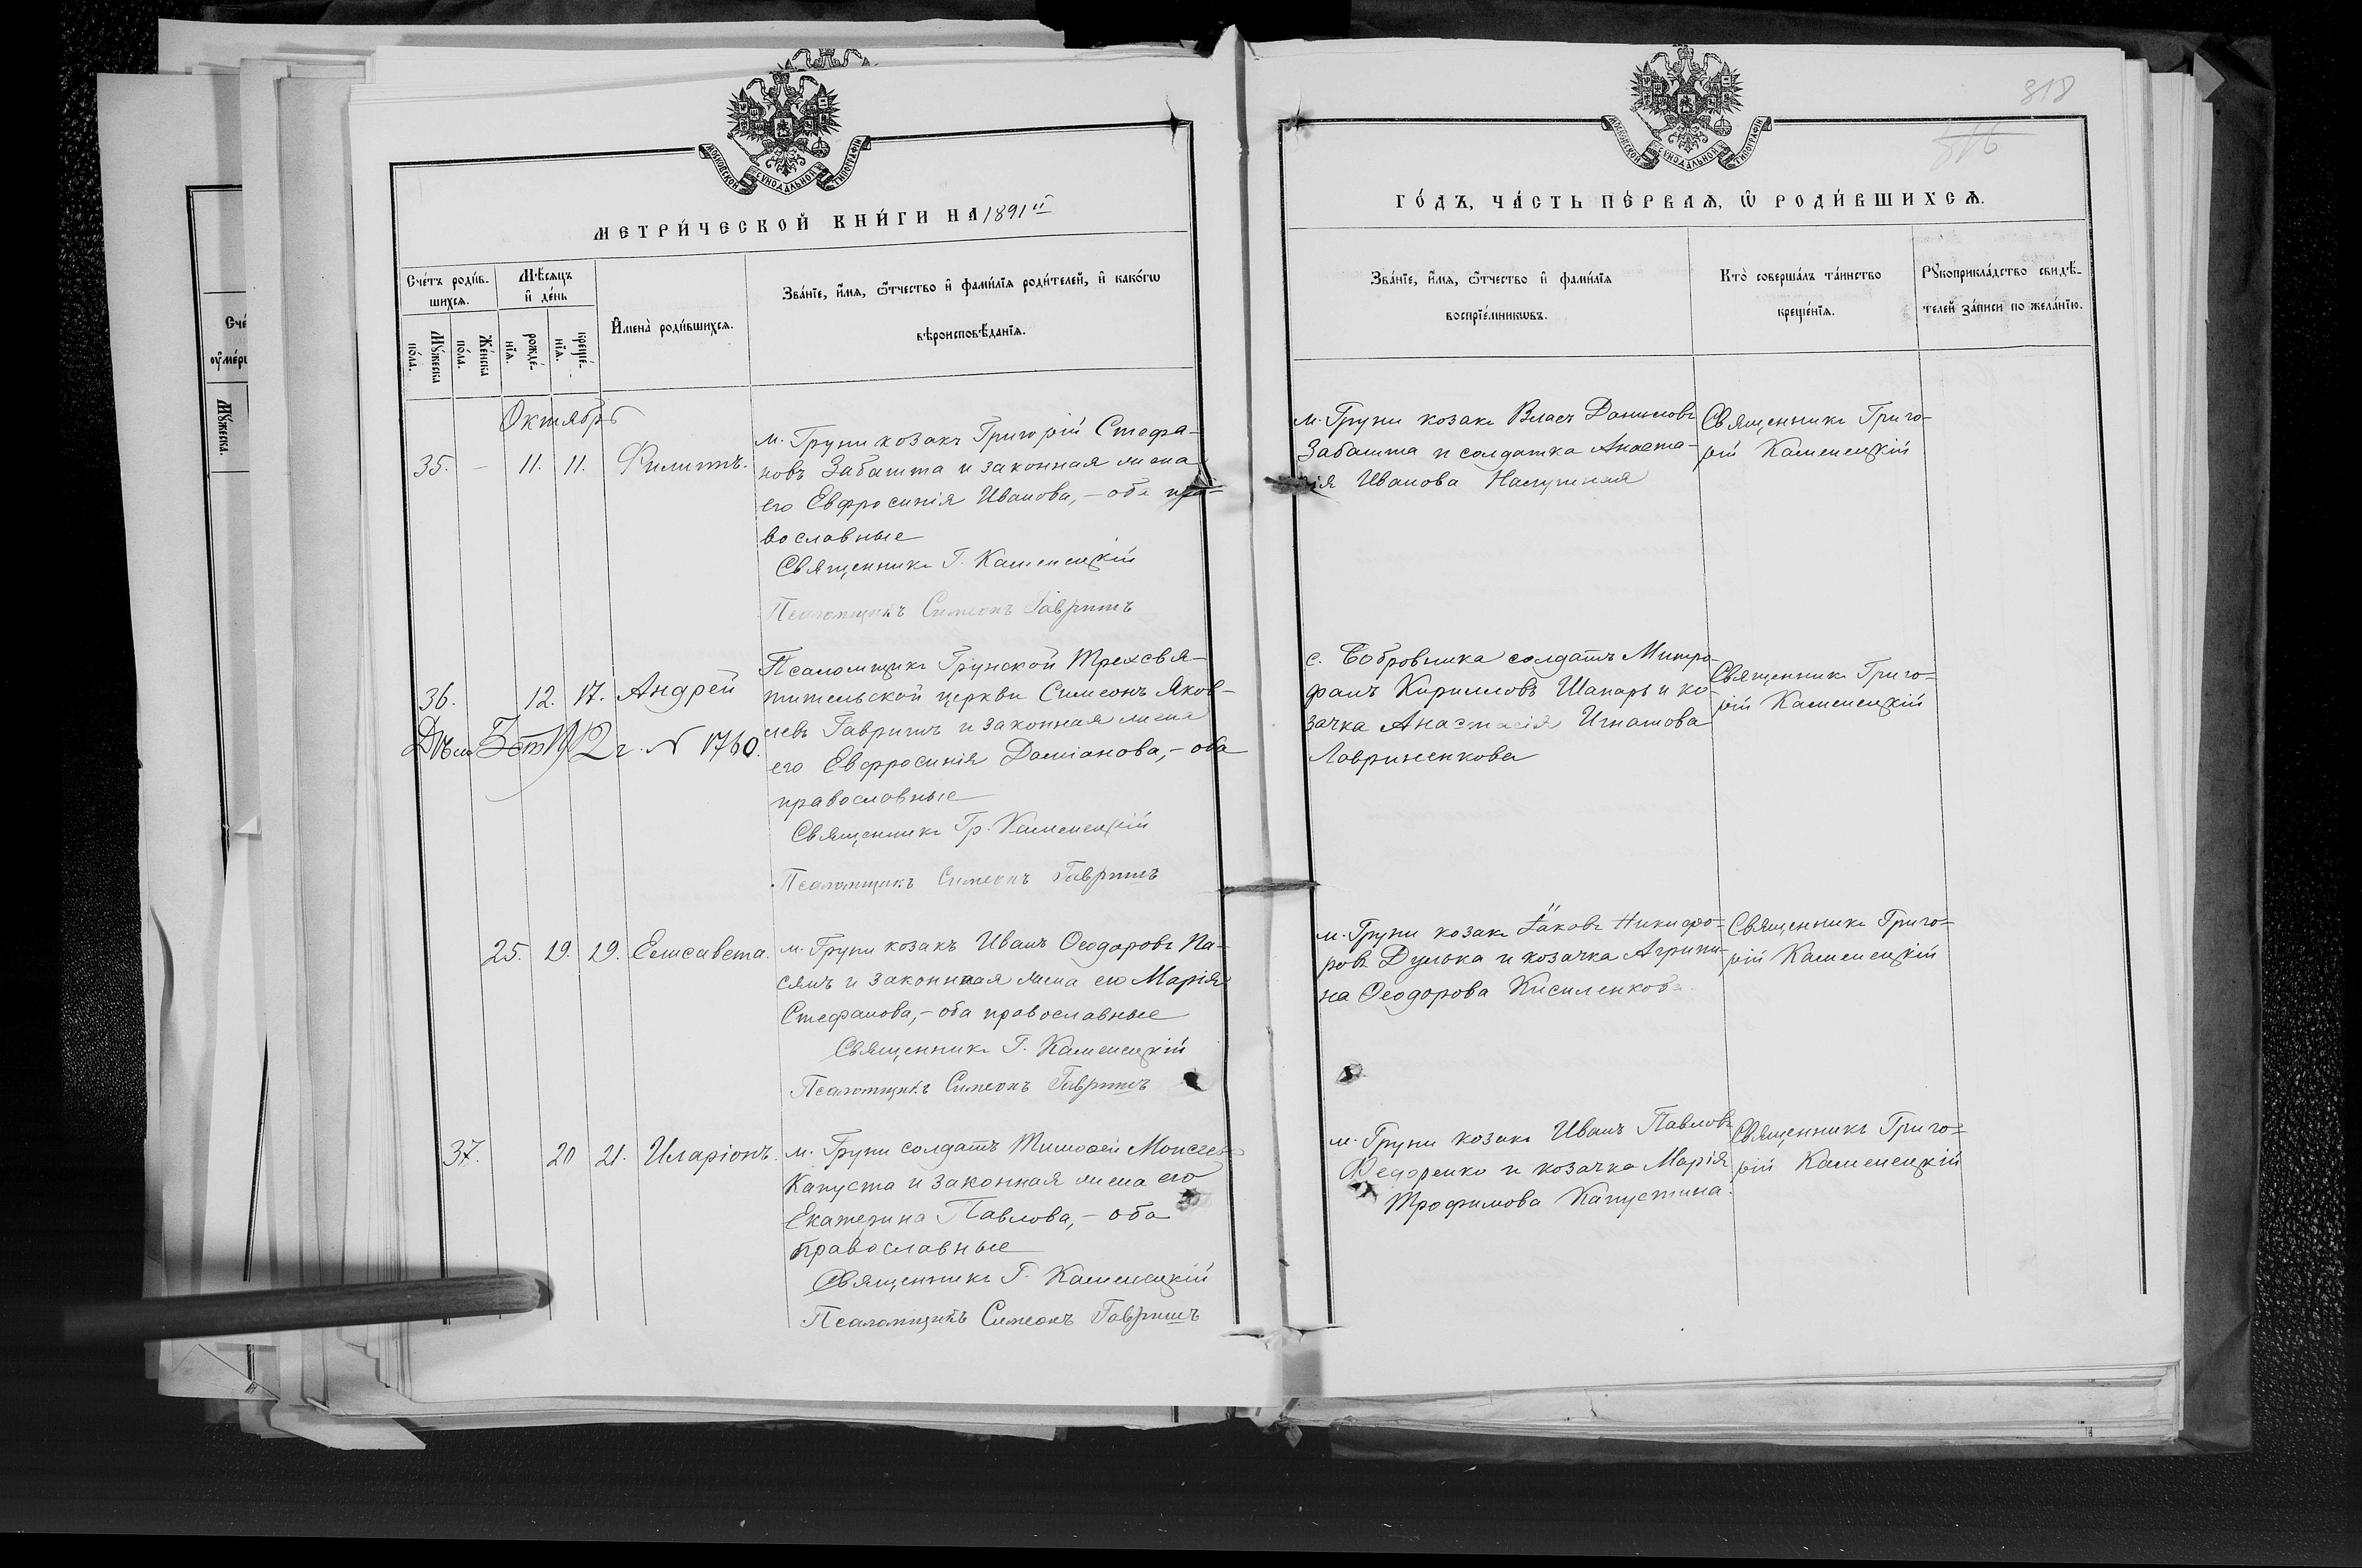 МОСКОВСКОЙ СѴНОДАЛЬНОЙ ТИПОГРАФІИ
МЕТРИ́ЧЕСКОЙ КНИ́ГИ НА 1891й
Сче́тъ роди́в-
шихсѧ.
Мѣ́сѧцъ
и҆ де́нь
Мꙋ́жеска
по́ла.
Же́нска
по́ла.
рожде́-
нїѧ.
креще́-
нїѧ.
И҆мена̀ роди́вшихсѧ.
Зва́нїе, и҆́мѧ, ѻ҆́тчество и҆ фами́лїѧ роди́телей, и҆ како́гѡ
вѣроисповѣ́данїѧ.
Октябрь
35. - 11. 11. Филиппъ.
м. Груни козакъ Григорій Стефа-
новъ Забашта и законная жена
его Евфросинія Иванова, - оба пра-
вославные
Священникъ Г. Каменецкій
Псаломщикъ Симеонъ Гавришъ
36. 12. 17. Андрей
№ 1760.
Псаломщикъ Грунской Трехсвя-
тительской церкви Симеонъ Яков-
левъ Гавришъ и законная жена
его Евфросинія Даміанова, - оба
православные
Священникъ Гр. Каменецкій
Псаломщикъ Симеонъ Гавришъ
25. 19. 19. Елисавета.
м. Груни козакъ Иванъ Ѳеодоровъ Па-
сякъ и законная жена его Марія
Стефанова, - оба православные
Священникъ Г. Каменецкій
Псаломщикъ Симеонъ Гавришъ
37. 20 21. Иларіонъ.
м. Груни солдатъ Тимоѳей Моисеевъ
Капуста и законная жена его
Екатерина Павлова, - оба
православные
Священникъ Г. Каменецкій
Псаломщикъ Симеонъ Гавришъ
318
МОСКОВСКОЙ СѴНОДАЛЬНОЙ ТИПОГРАФІИ
ГО́ДЪ, ЧА́СТЬ ПЕ́РВАѦ, Ѡ҆ РОДИ́ВШИХСѦ.
Зва́нїе, и҆́мѧ, ѻ҆́тчество и҆ фами́лїѧ
воспрїе́мникѡвъ.
Кто̀ соверша́лъ та́инство
креще́нїѧ.
Рꙋкоприкла́дство свидѣ́-
телей за́писи по жела́нїю.
м. Груни козакъ Власъ Даниловъ
Забашта и солдатка Анаста-
сія Иванова
Священникъ Григо-
рій Каменецкій
с. Бобровника солдатъ Митро-
фанъ Кирилловъ Шапарь и ко-
зачка Анастасія Игнатова
Лавриненкова
Священникъ Григо-
рій Каменецкій
м. Груни козакъ Іаковъ Никифо-
ровъ Дулька и козачка Агрипи-
на Ѳеодорова Кисиленкова.
Священникъ Григо-
рій Каменецкій
м. Груни козакъ Иванъ Павловъ
Федоренко и козачка Марія
Трофимова Капустина.
Священникъ Григо-
рій Каменецкій
Сче́
ѹ҆ме́р
Мꙋ́жеска.